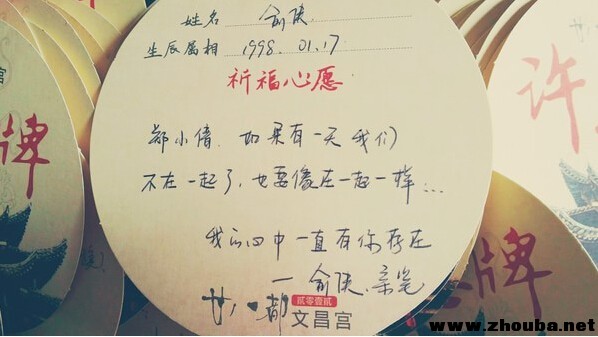 姓名 俞侠
生辰属相 1998.01.17
祈福心愿
郑小倩、如果有一天我们
不在一起了,也要像在一起一样...
我的心中一直有你存在
— 俞侠、亲笔
贰零壹贰
都
文昌宫
宫
牌
许
牌
www.zhouba.net